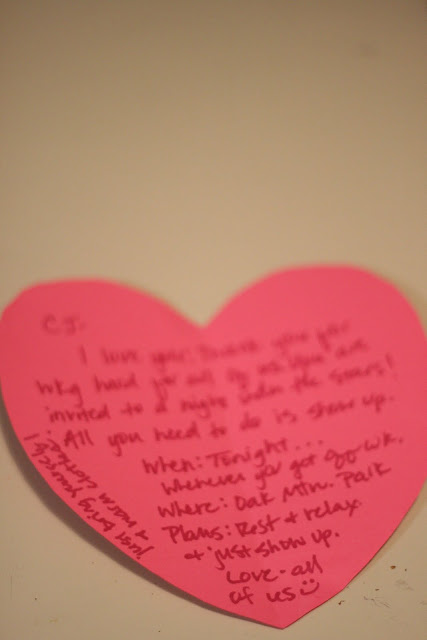 C.J.
I love you! Thank you for
wkg hard for all of us. You are
invited to a night under the stars!
All you need to do is show up.
When: Tonight...
whenever you get off wk.
Where: Oak Mtn. Park
Plans: Rest + relax.
+ just show up.
Love- all
of us☺
just bring yourself!
+ warm clothes!